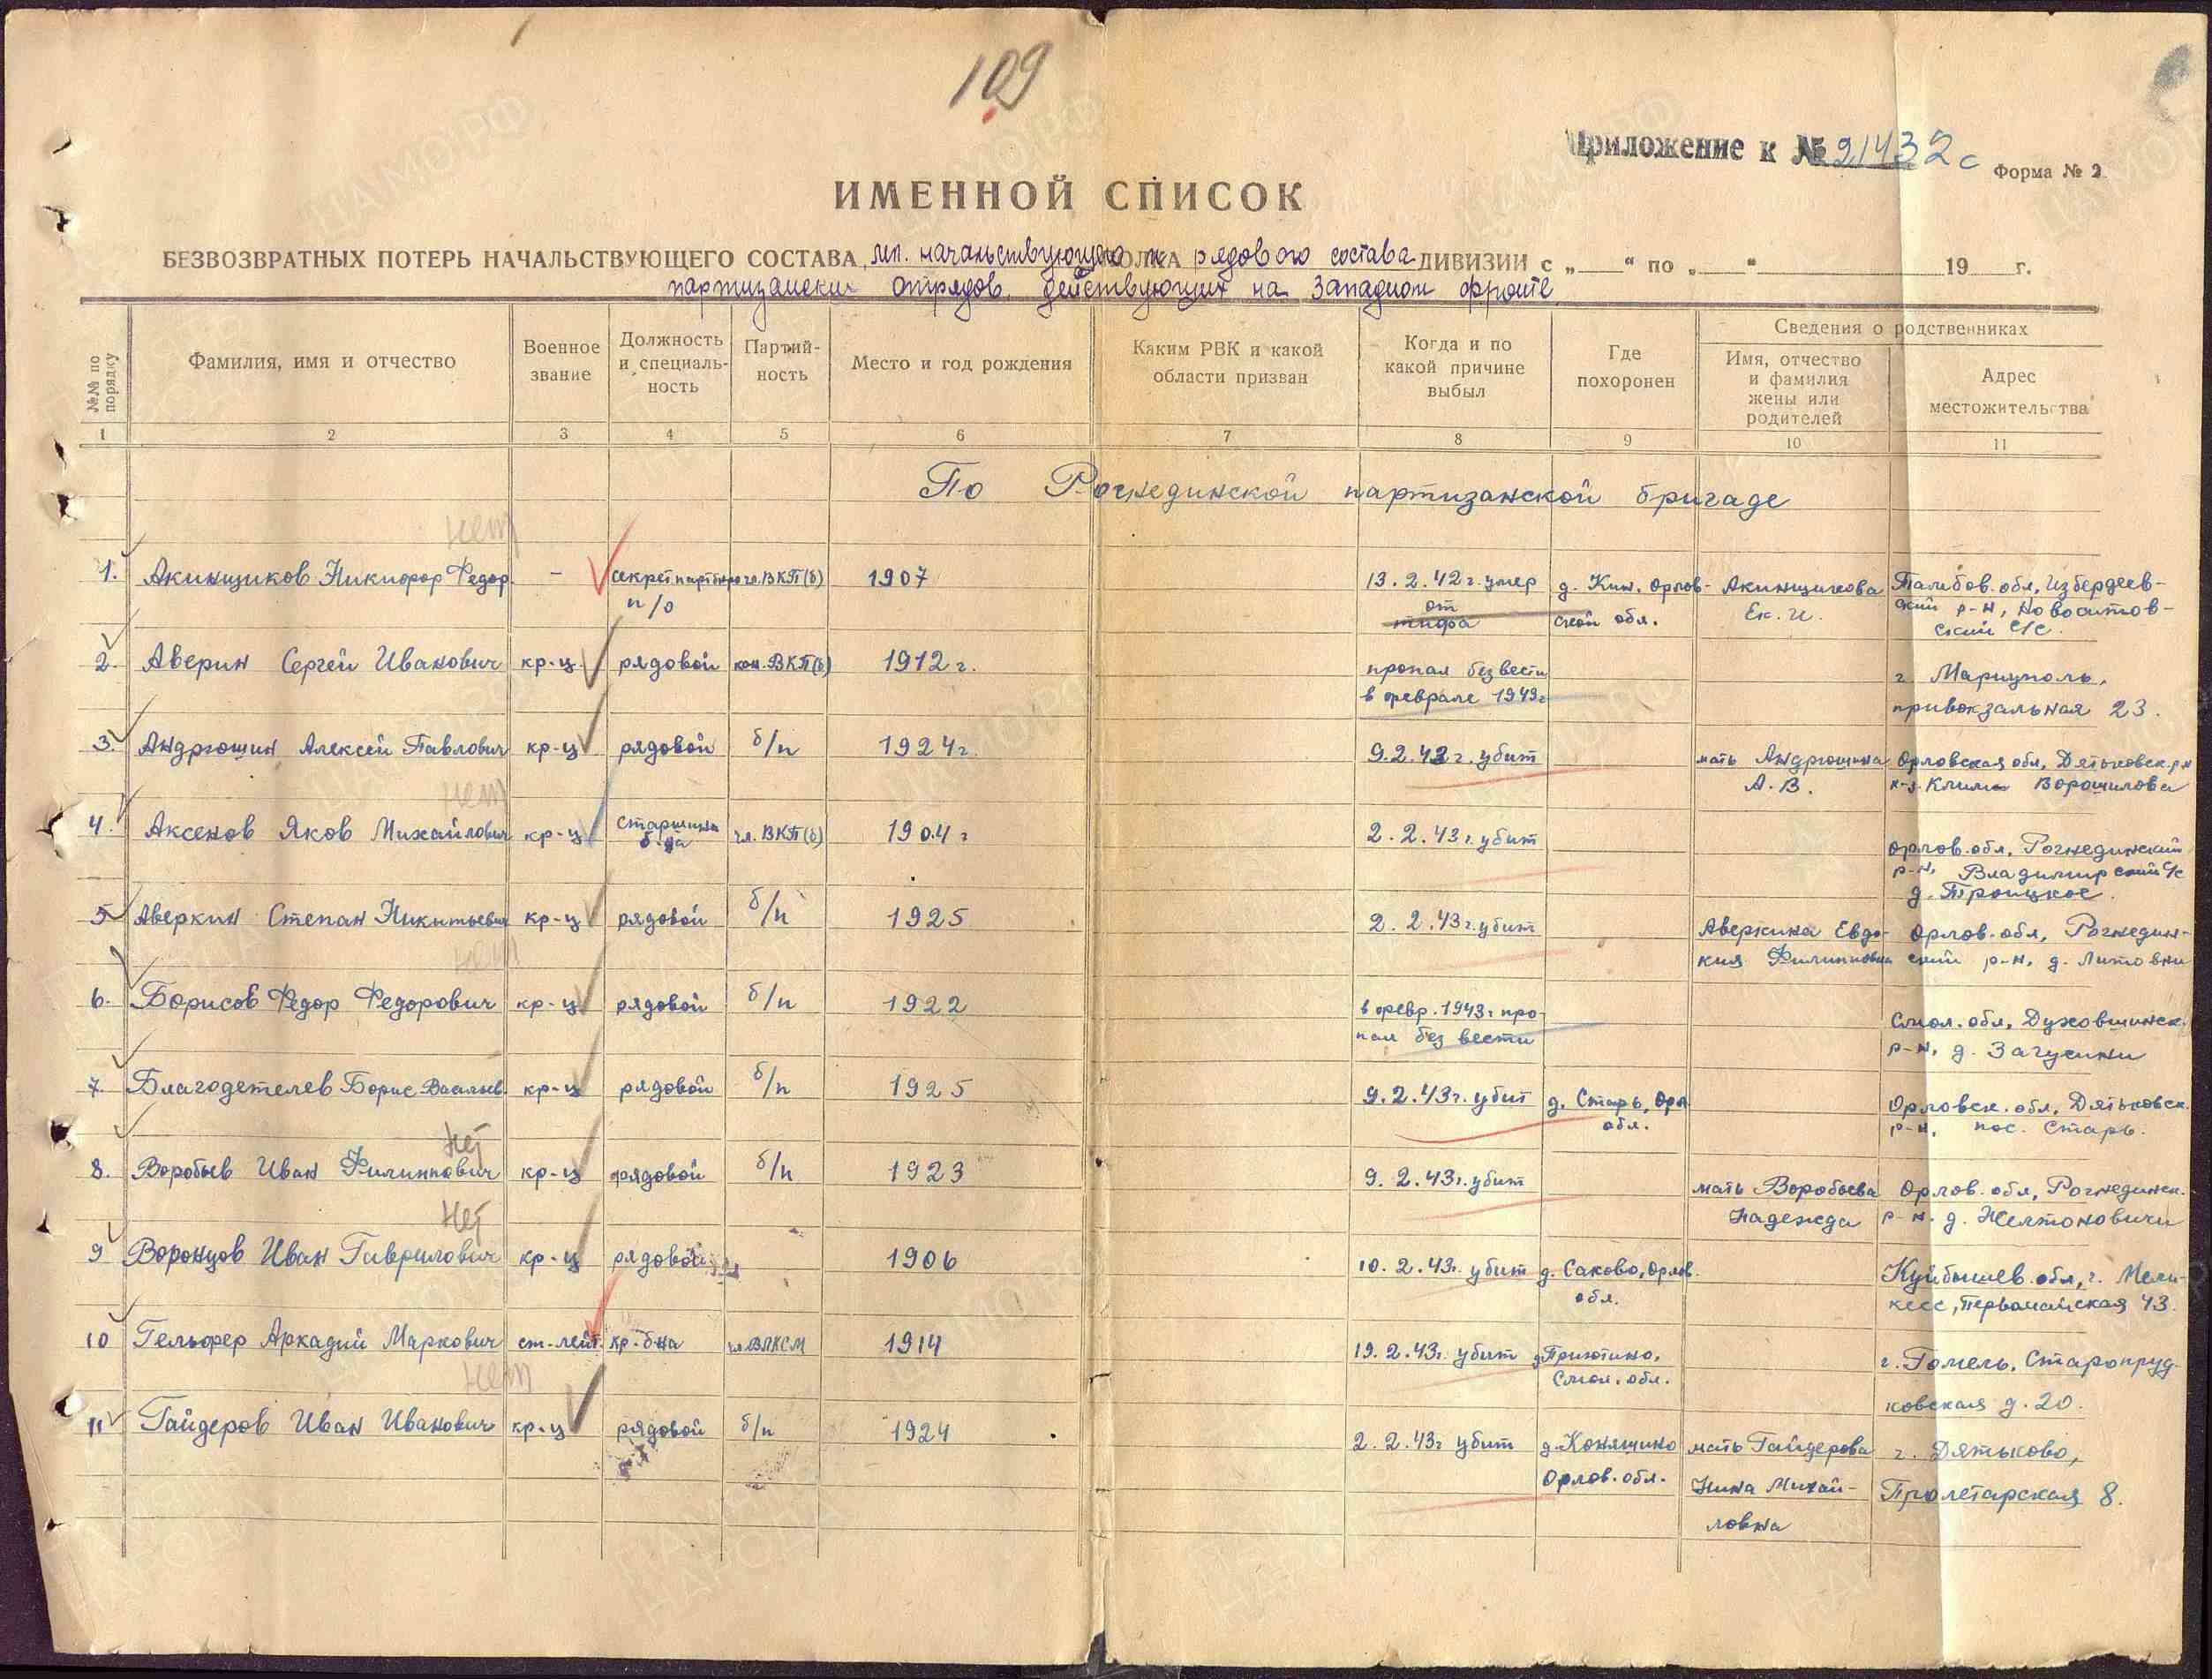 109
Приложение к № 21432с
Форма № 2
ИМЕННОЙ СПИСОК
БЕЗВОЗВРАТНЫХ ПОТЕРЬ НАЧАЛЬСТВУЮЩЕГО СОСТАВА, мл. начальствующего и рядового состава ДИВИЗИИ с „ “ по „ “ 19 г.
партизанских отрядов действующих на Западном фронте
№№ по порядку
Фамилия, имя и отчество
Военное звание
Должность и специаль-ность
Партий-ность
Место и год рождения
Каким РВК и какой области призван
Когда и по какой причине выбыл
Где похоронен
Сведения о родственниках
Имя, отчество и фамилия жены или родителей
Адрес местожительства
1 2 3 4 5 6 7 8 9 10 11
По Рогнединской партизанской бригаде
нет
1. Акинщиков Никифор Федор - секрет. партбюро чл. ВКП(б) 1907 13.2.42г. умер д. Кин. Орлов- Акинщикова Тамбов. обл, Избердеев-
п/о от ской обл. Ек. И. ский р-н, Новоситов-
тифа ский С/С.
2. Аверин Сергей Иванович кр-ц рядовой кан. ВКП(б) 1912 г. пропал без вести г. Мариуполь,
в феврале 1943г привокзальная 23.
3. Андрюшин Алексей Павлович кр-ц рядовой б/п 1924г. 9.2.43г. убит мать Андрюшина Орловская обл, Дятьковск. р-н
А.В. к-з. Клима Ворошилова
нет
4. Аксенов Яков Михайлович кр-ц старшина чл. ВКП(б) 1904 г 2.2.43г. убит Орлов. обл. Рогнединский
б-на р-н, Владимирский С/с
д. Троицкое.
5 Аверкин Степан Никитьевич кр-ц рядовой б/п 1925 2.2.43г. убит Аверкина Евдо- Орлов. обл, Рогнедин-
кия Филипповна ский р-н, д. Литовни
нет
6. Борисов Федор Федорович кр-ц рядовой б/п 1922 в февр. 1943г. про- Смол. обл, Духовшинск.
пал без вести р-н, д. Загусини
7. Благодетелев Борис Васильев. кр-ц рядовой б/п 1925 9.2.43г. убит д. Старь, Орл Орловск. обл, Дятьковск.
обл. р-н, пос. Старь.
Нет
8. Воробьев Иван Филиппович кр-ц рядовой б/п 1923 9.2.43г. убит мать Воробьева Орлов. обл, Рогнединск.
Надежда р-н. д. Желтоновичи
Нет
9 Воронцов Иван Гаврилович кр-ц рядовой 1906 10.2.43г. убит д. Саково, Орлов. Куйбышев. обл, г. Меле-
обл. кесс, Первомайская 43.
10 Гельфер Аркадий Маркович ст-лейт. кр. б-на чл. ВЛКСМ 1914 19.2.43г. убит д. Приютино, г. Гомель, Старопруд-
Смол. обл. ковская д. 20.
нет
11 Гайдеров Иван Иванович кр-ц рядовой б/п 1924 2.2.43г убит д. Коняшино мать Гайдерова г. Дятьково,
Орлов. обл. Нина Михай- Пролетарская 8.
ловна